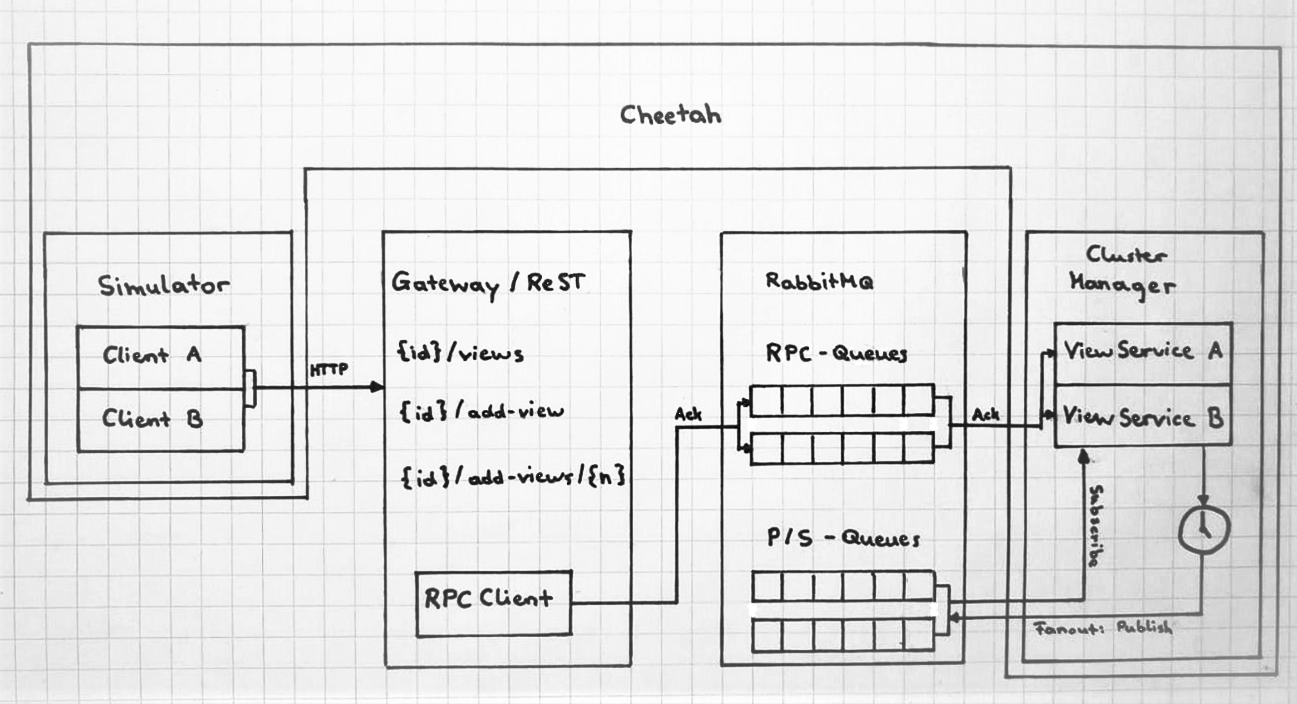 Cheetah
Simulator
Client A
Client B
HTTP
Gateway / ReST
{id}/views
{id}/add-view
{id}/add-views/{n}
RPC Client
Ack
RabbitMQ
RPC - Queues
P/S - Queues
Ack
Cluster
Manager
View Service A
View Service B
Subscribe
Fanout: Publish